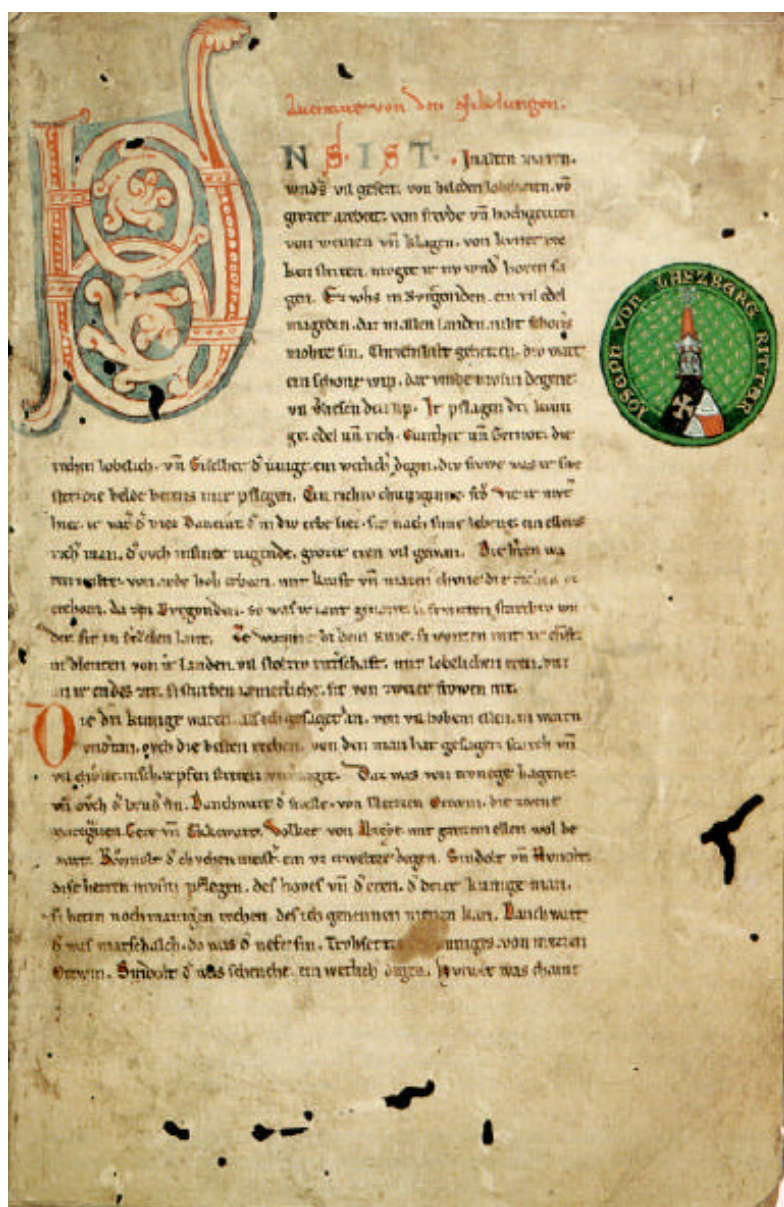 Auenture von den Nibelungen.
UNS. IST. In alten mæren.
wnds vil geseit. von heleden lobebæren. vō
grozer arebeit. von frevde vn̄ hochgeciten
von weinen vn̄ klagen. von kuner rec
ken striten. moget ir nv wnd' horen sa
gen. Ez whs in Burgonden. ein vil edel
magedin. daz in allen landen. niht schoners
mohte sin. Chriemhilt geheizen. div wart
ein schone wip. dar vmbe mvsin degene
vil v'liesen den lip. Ir pflagen dri kuni
ge. edel vn̄ rich. Gunther vn̄ Gernot. die
rechen lobelich. vn̄ Giselher d' iunge. ein wetlich' degen. div frowe was ir swe
ster. die helde hetens inir pflegen. Ein richiv chuneginne. fro Vte ir mvt'
hiez. ir vat' d' hiez Dancrat. d' in div erbe liez. sit nach sime lebene. ein ellens
rich' man. d' ovch in siner iugende. grozer eren vil gewan. Die h'ren wa
ren milte. von arde hoh erborn. mit kraft vn̄ mazen chvne die rechen vz
erchorn. da zen Burgonden. so was ir lant genant. si frvmten starchiv wn
der sit in Etzelen lant. Ze wormze bi dem Rine. si wonten mit ir chraft.
in dienten von ir landen. vil stolziv ritt'schaft. mit lobelichen eren. vnz
an ir endes zit. si sturben iæmerliche. sit von zweier frowen nit.
Die dri kunige waren. als ich gesaget han. von vil hohem ellen. in waren
vndertan. ovch die besten rechen. von den man hat gesagen. starch vn̄
vil chvne. in scharpfen striten vnverzaget. Daz was von tronege hagene.
vn̄ ovch d' brud' sin. Danchwart d' snelle. von Metzen Ortwin. die zwene
marcgrauen. Gere vn̄ Ekkewart. Volker von Alzeye. mit ganzem ellen wol be
wart. Rvmolt d' chvchen meist'. ein vz erwelter degen. Sindolt vn̄ Hvnolt.
dise herren mvsin pflegen. des hoves vn̄ d' eren. d' drier kunige man.
si heten noch manigen rechen. des ich genennen nienen kan. Danchwart
d' was marschalch. do was d' nefe sin. Trvhsetze des kuniges. von metzen
Ortwin. Sindolt d' was schenche. ein wetlich degen. Hvnolt was chamr
JOSEPH VON LASZBERG RITTER